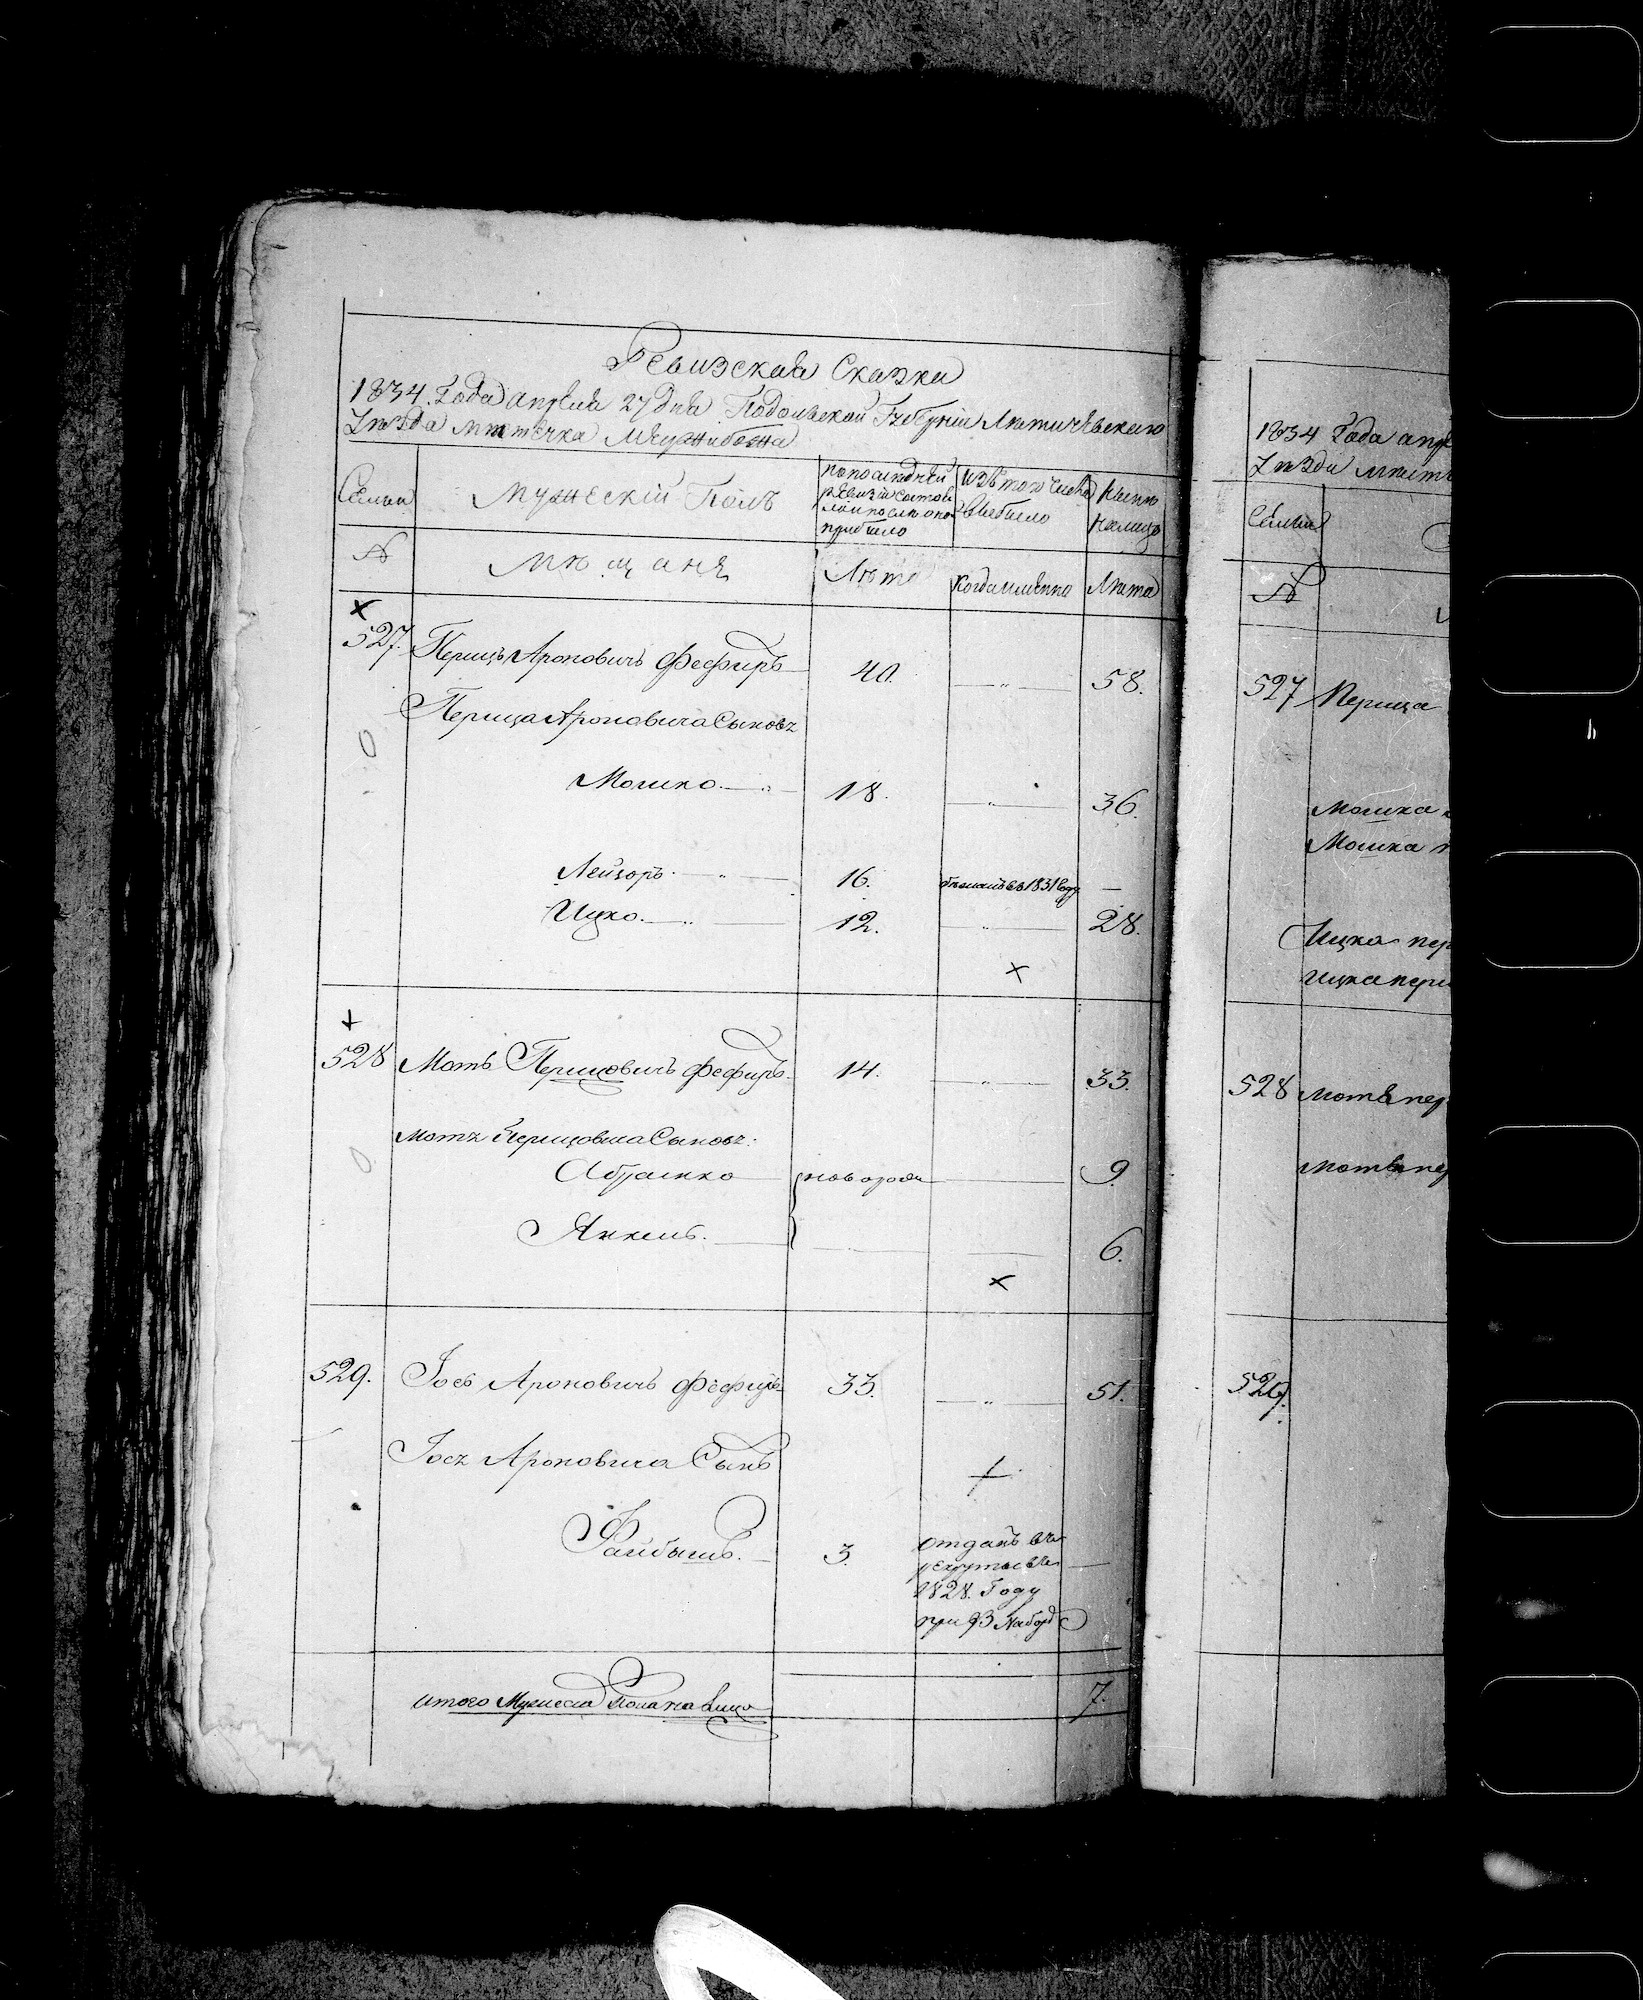 Ревизская Сказка
1834. Года апреля 27 дня Подольской Губерніи Летичевскаго
Уѣзда мѣстечка Меджибожа
Семьи
Мужескій Полъ
по последней
ревизіи состоя
ло и послѣ оной
прибыло
Изъ того числа
выбыло
Нынѣ
на лицо
№
Мѣщане
Лѣта
Когда именно
Лѣта
527. Перицъ Ароновичъ Фефиръ 40. — " — 58.
Перица Ароновича Сыновъ
Мошко — " — 18. — " — 36.
Лейзоръ — " — 16. въ 1831 году —
Ицко — " — 12. — " — 28.
528 Моть Перицовичъ Фефиръ 14. — " — 33.
Мотя Перицовича Сыновъ:
Абрамко новорож — 9.
Янкель. — 6.
529. Іось Ароновичъ Фефиръ 33. — " — 51.
Іося Ароновича Сынъ
Файбышъ. — 3. отданъ въ
рекруты въ
1828. Году
при 93 Наборѣ
итого Мужеска Пола на лицо 7.
1834 Года апре
Уѣзда мѣст
Семьи
№
527 Перица
Мошка
Мошка
Ицка пер
Ицка пери
528 Мотя пер
Мотя пер
529.